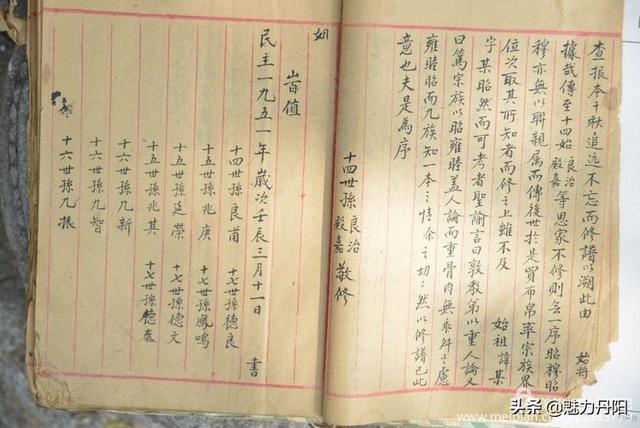 查報本于耿追远不忘而修譜以溯此由 始將
據哉傳至十四始良治殿嘉等思家不修則合一序昭穆昭
穆亦無以聯親属而傳後世於是買布帛率宗族畧
位次取其所知者而修之上雖不及 始祖諱某
字某昭然而可考者聖諭言曰敦教弟以重人論又
曰篤宗族以昭雍睦盖人論而重骨肉無乖舛之慮
雍睦昭而九族知一本之情余之切之然以修譜已此
意也夫是為序
十四世孫良治殿嘉敬修
民主一九五一年歲次壬辰三月十一日 書
十四世孫良甫 十七世孫德良
十五世孫兆庚 十七世孫鳳鳴
十五世孫廷榮 十七世孫德文
十五世孫兆其 十七世孫德泰
十六世孫九新
十六世孫九智
十六世孫九振
峕值
如
头条 @魅力丹阳